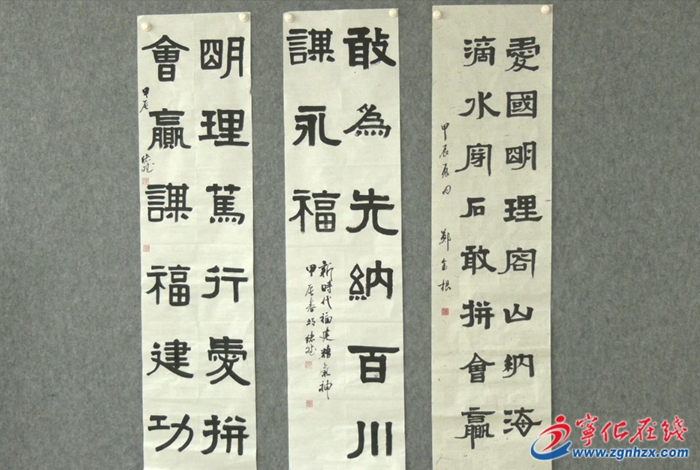 愛國明理容山納海
滴水穿石敢拼會贏
甲辰夏月
敢為先納百川
謀永福
新時代福建精氣神
甲辰春
明理篤行愛拼
會贏謀福建功
甲辰
寧化在线
www.zgnhzx.com